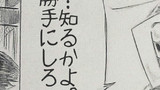 ？知るかよ。
勝手にしろ